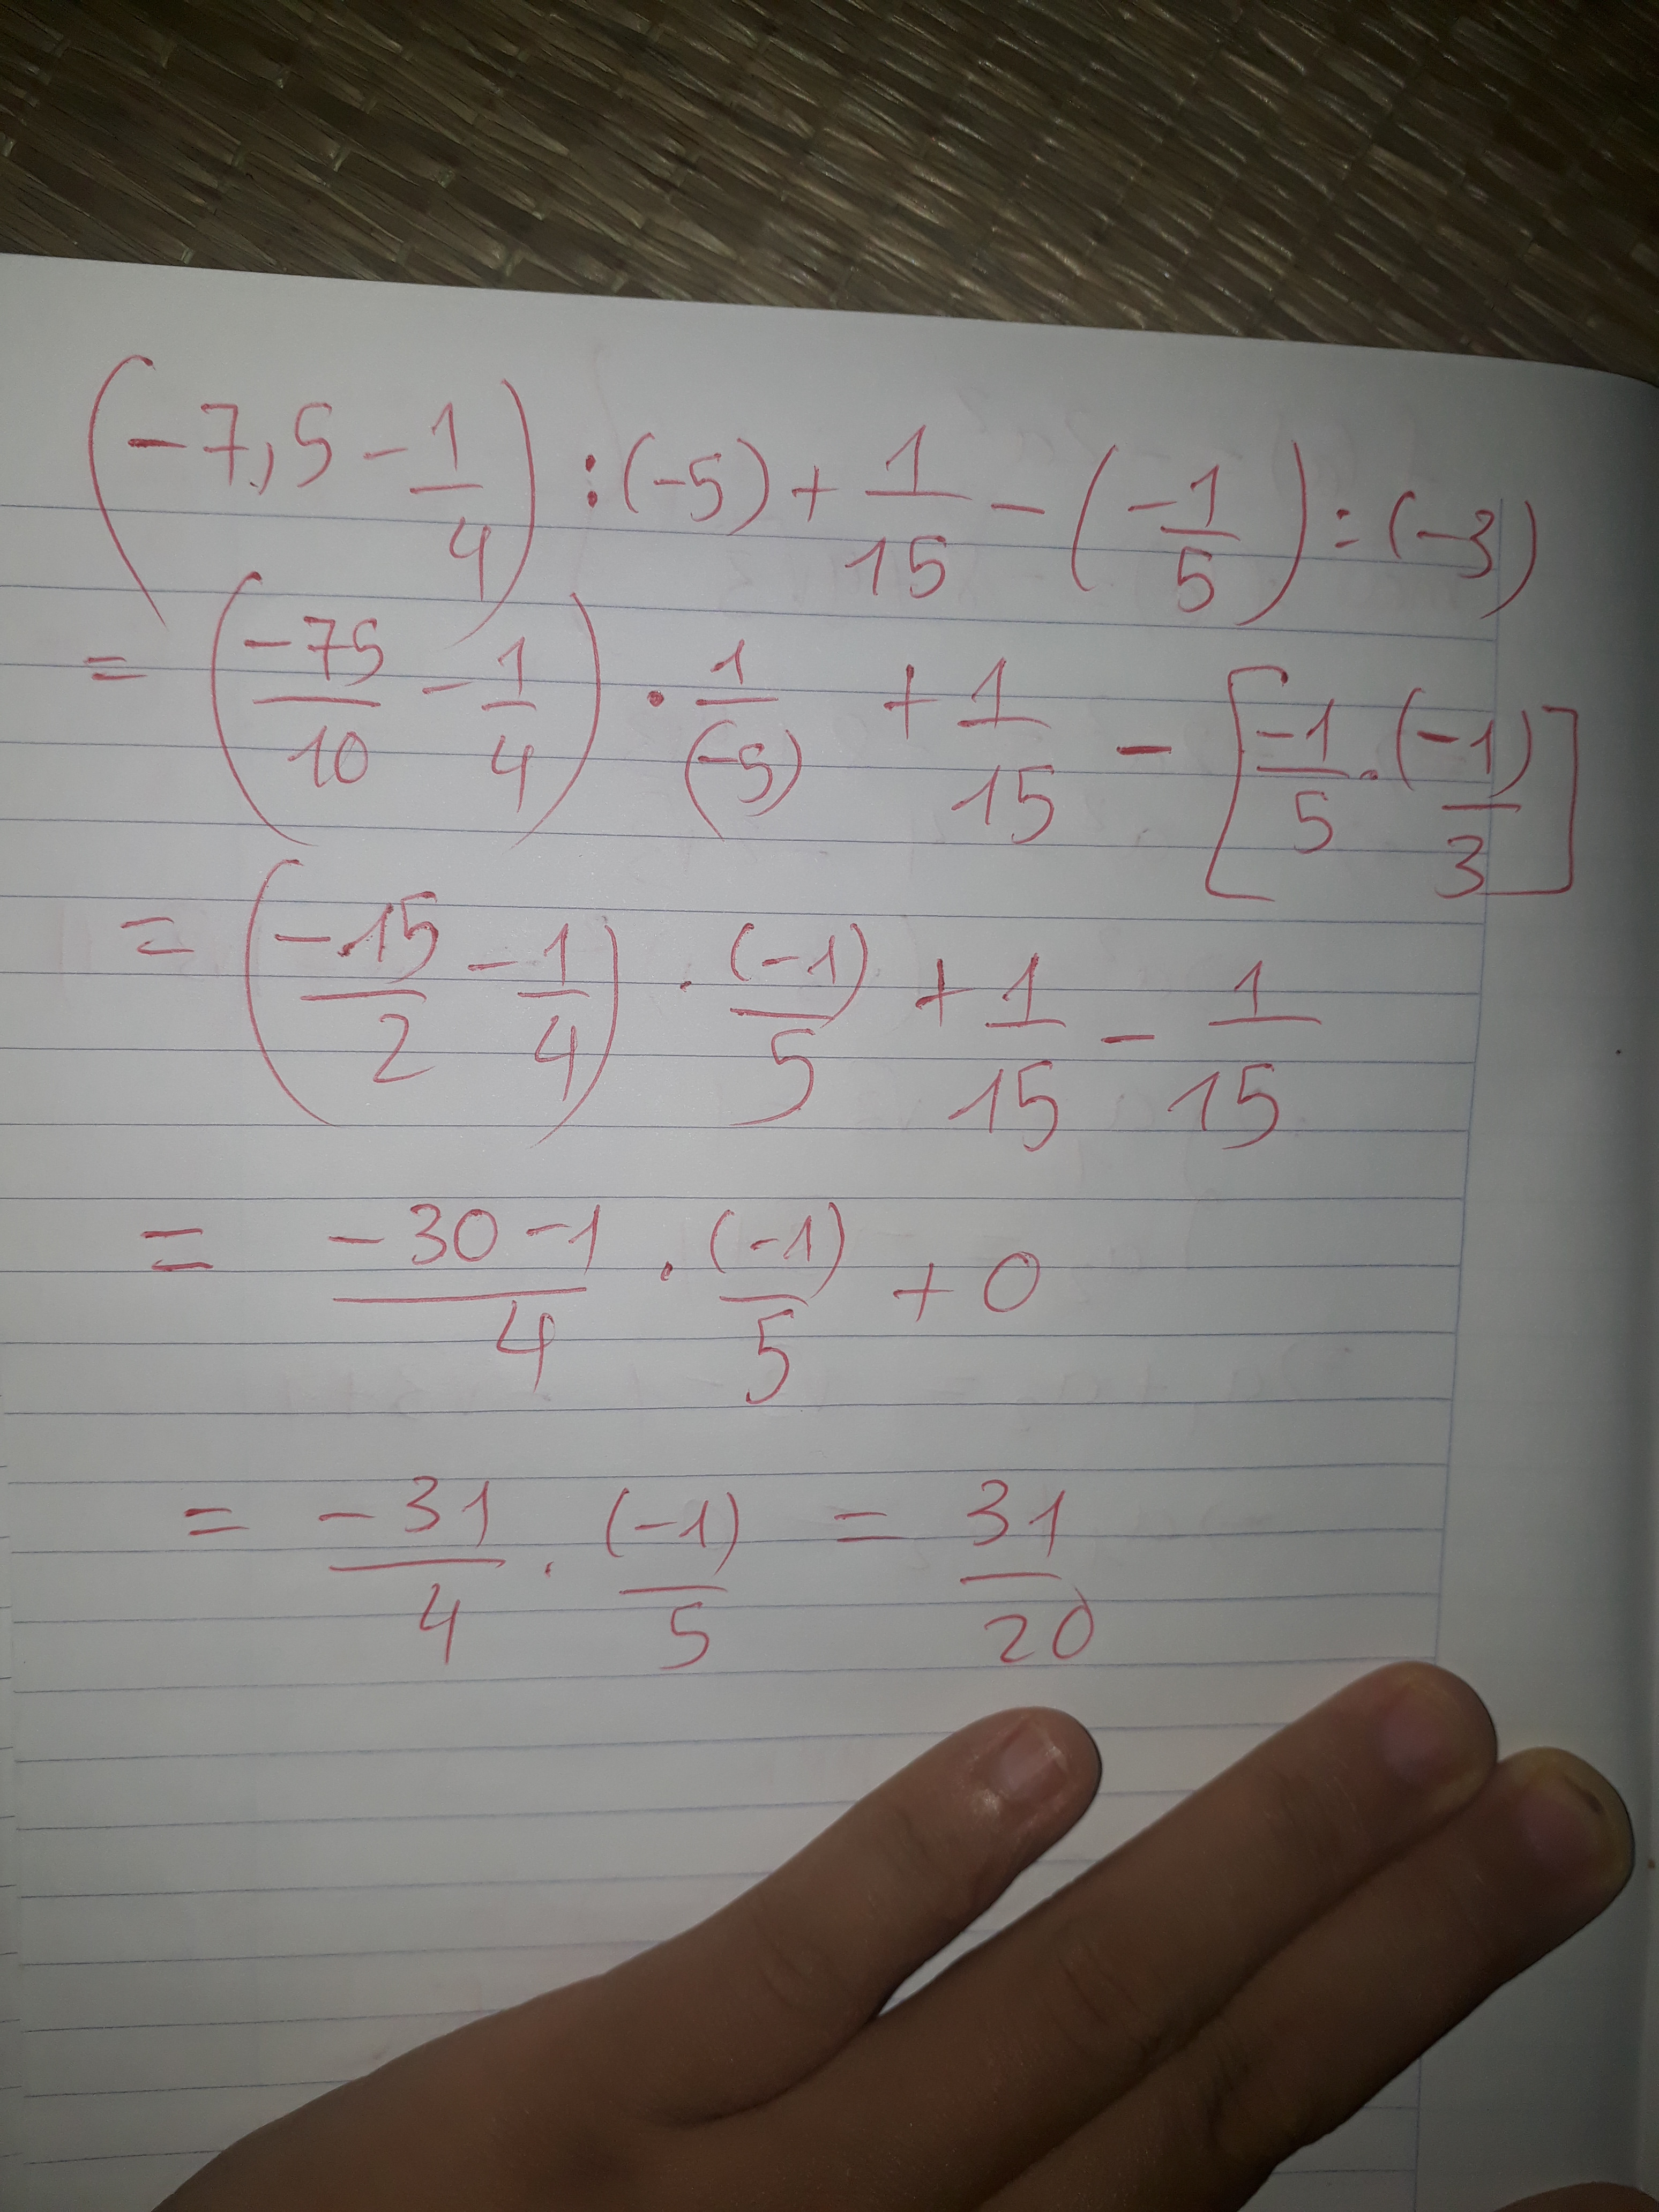 (-7,5 - 1/4) : (-5) + 1/15 - (-1/5) : (-3)
= (-75/10 - 1/4) . 1/(-5) + 1/15 - [-1/5 . (-1)/3]
= (-15/2 - 1/4) . (-1)/5 + 1/15 - 1/15
= (-30-1)/4 . (-1)/5 + 0
= -31/4 . (-1)/5 = 31/20